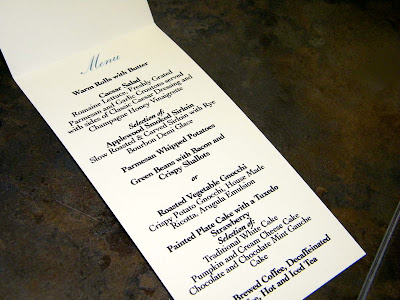 Menu
Warm Rolls with Butter
Caesar Salad
Romaine Lettuce, Freshly Grated
Parmesan and Garlic Croutons served
with sides of Classic Caesar Dressing and
Champagne Honey Vinaigrette
Selection of:
Applewood Smoked Sirloin
Slow Roasted & Carved Sirloin with Rye
Bourbon Demi Glace
Parmesan Whipped Potatoes
Green Beans with Bacon and
Crispy Shallots
or
Roasted Vegetable Gnocchi
Crispy Potato Gnocchi, House Made
Ricotta, Arugula Emulsion
Painted Plate Cake with a Tuxedo
Strawberry
Selection of:
Traditional White Cake
Pumpkin and Cream Cheese Cake
Chocolate and Chocolate Mint Ganache
Cake
Brewed Coffee, Decaffeinated
Hot and Iced Tea